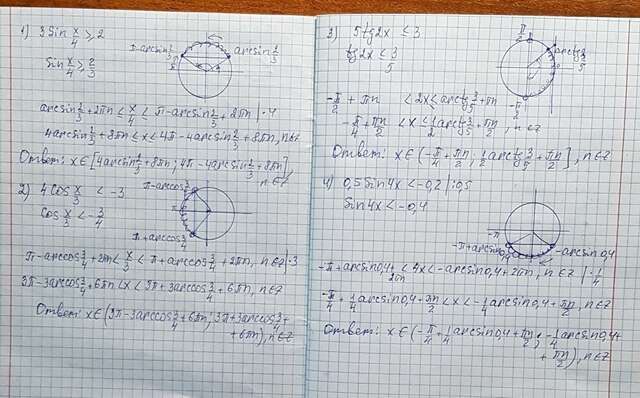 1) 3 sin x/4 ≥ 2
sin x/4 ≥ 2/3
π-arcsin 2/3
arcsin 2/3
arcsin 2/3 + 2πn ≤ x/4 ≤ π - arcsin 2/3 + 2πn | · 4
4arcsin 2/3 + 8πn ≤ x ≤ 4π - 4arcsin 2/3 + 8πn, n∈Z
Ответ: x∈[4arcsin 2/3 + 8πn; 4π - 4arcsin 2/3 + 8πn],
n∈Z
2) 4 cos x/3 < -3
cos x/3 < -3/4
π-arccos 3/4
π
π+arccos 3/4
π - arccos 3/4 + 2πn < x/3 < π + arccos 3/4 + 2πn, n∈Z | · 3
3π - 3arccos 3/4 + 6πn < x < 3π + 3arccos 3/4 + 6πn, n∈Z
Ответ: x∈(3π - 3arccos 3/4 + 6πn; 3π + 3arccos 3/4 +
+ 6πn), n∈Z
3) 5 tg 2x ≤ 3
tg 2x ≤ 3/5
π/2
arctg 3/5
-π/2
-π/2 + πn < 2x ≤ arctg 3/5 + πn
-π/4 + πn/2 < x ≤ 1/2 arctg 3/5 + πn/2, n∈Z
Ответ: x∈(-π/4 + πn/2; 1/2 arctg 3/5 + πn/2], n∈Z
4) 0,5 sin 4x < -0,2 | : 0,5
sin 4x < -0,4
-π
-π+arcsin 0,4
-arcsin 0,4
-π + arcsin 0,4 + 2πn < 4x < -arcsin 0,4 + 2πn, n∈Z | · 1/4
-π/4 + 1/4 arcsin 0,4 + πn/2 < x < -1/4 arcsin 0,4 + πn/2, n∈Z
Ответ: x∈(-π/4 + 1/4 arcsin 0,4 + πn/2; -1/4 arcsin 0,4 +
+ πn/2), n∈Z